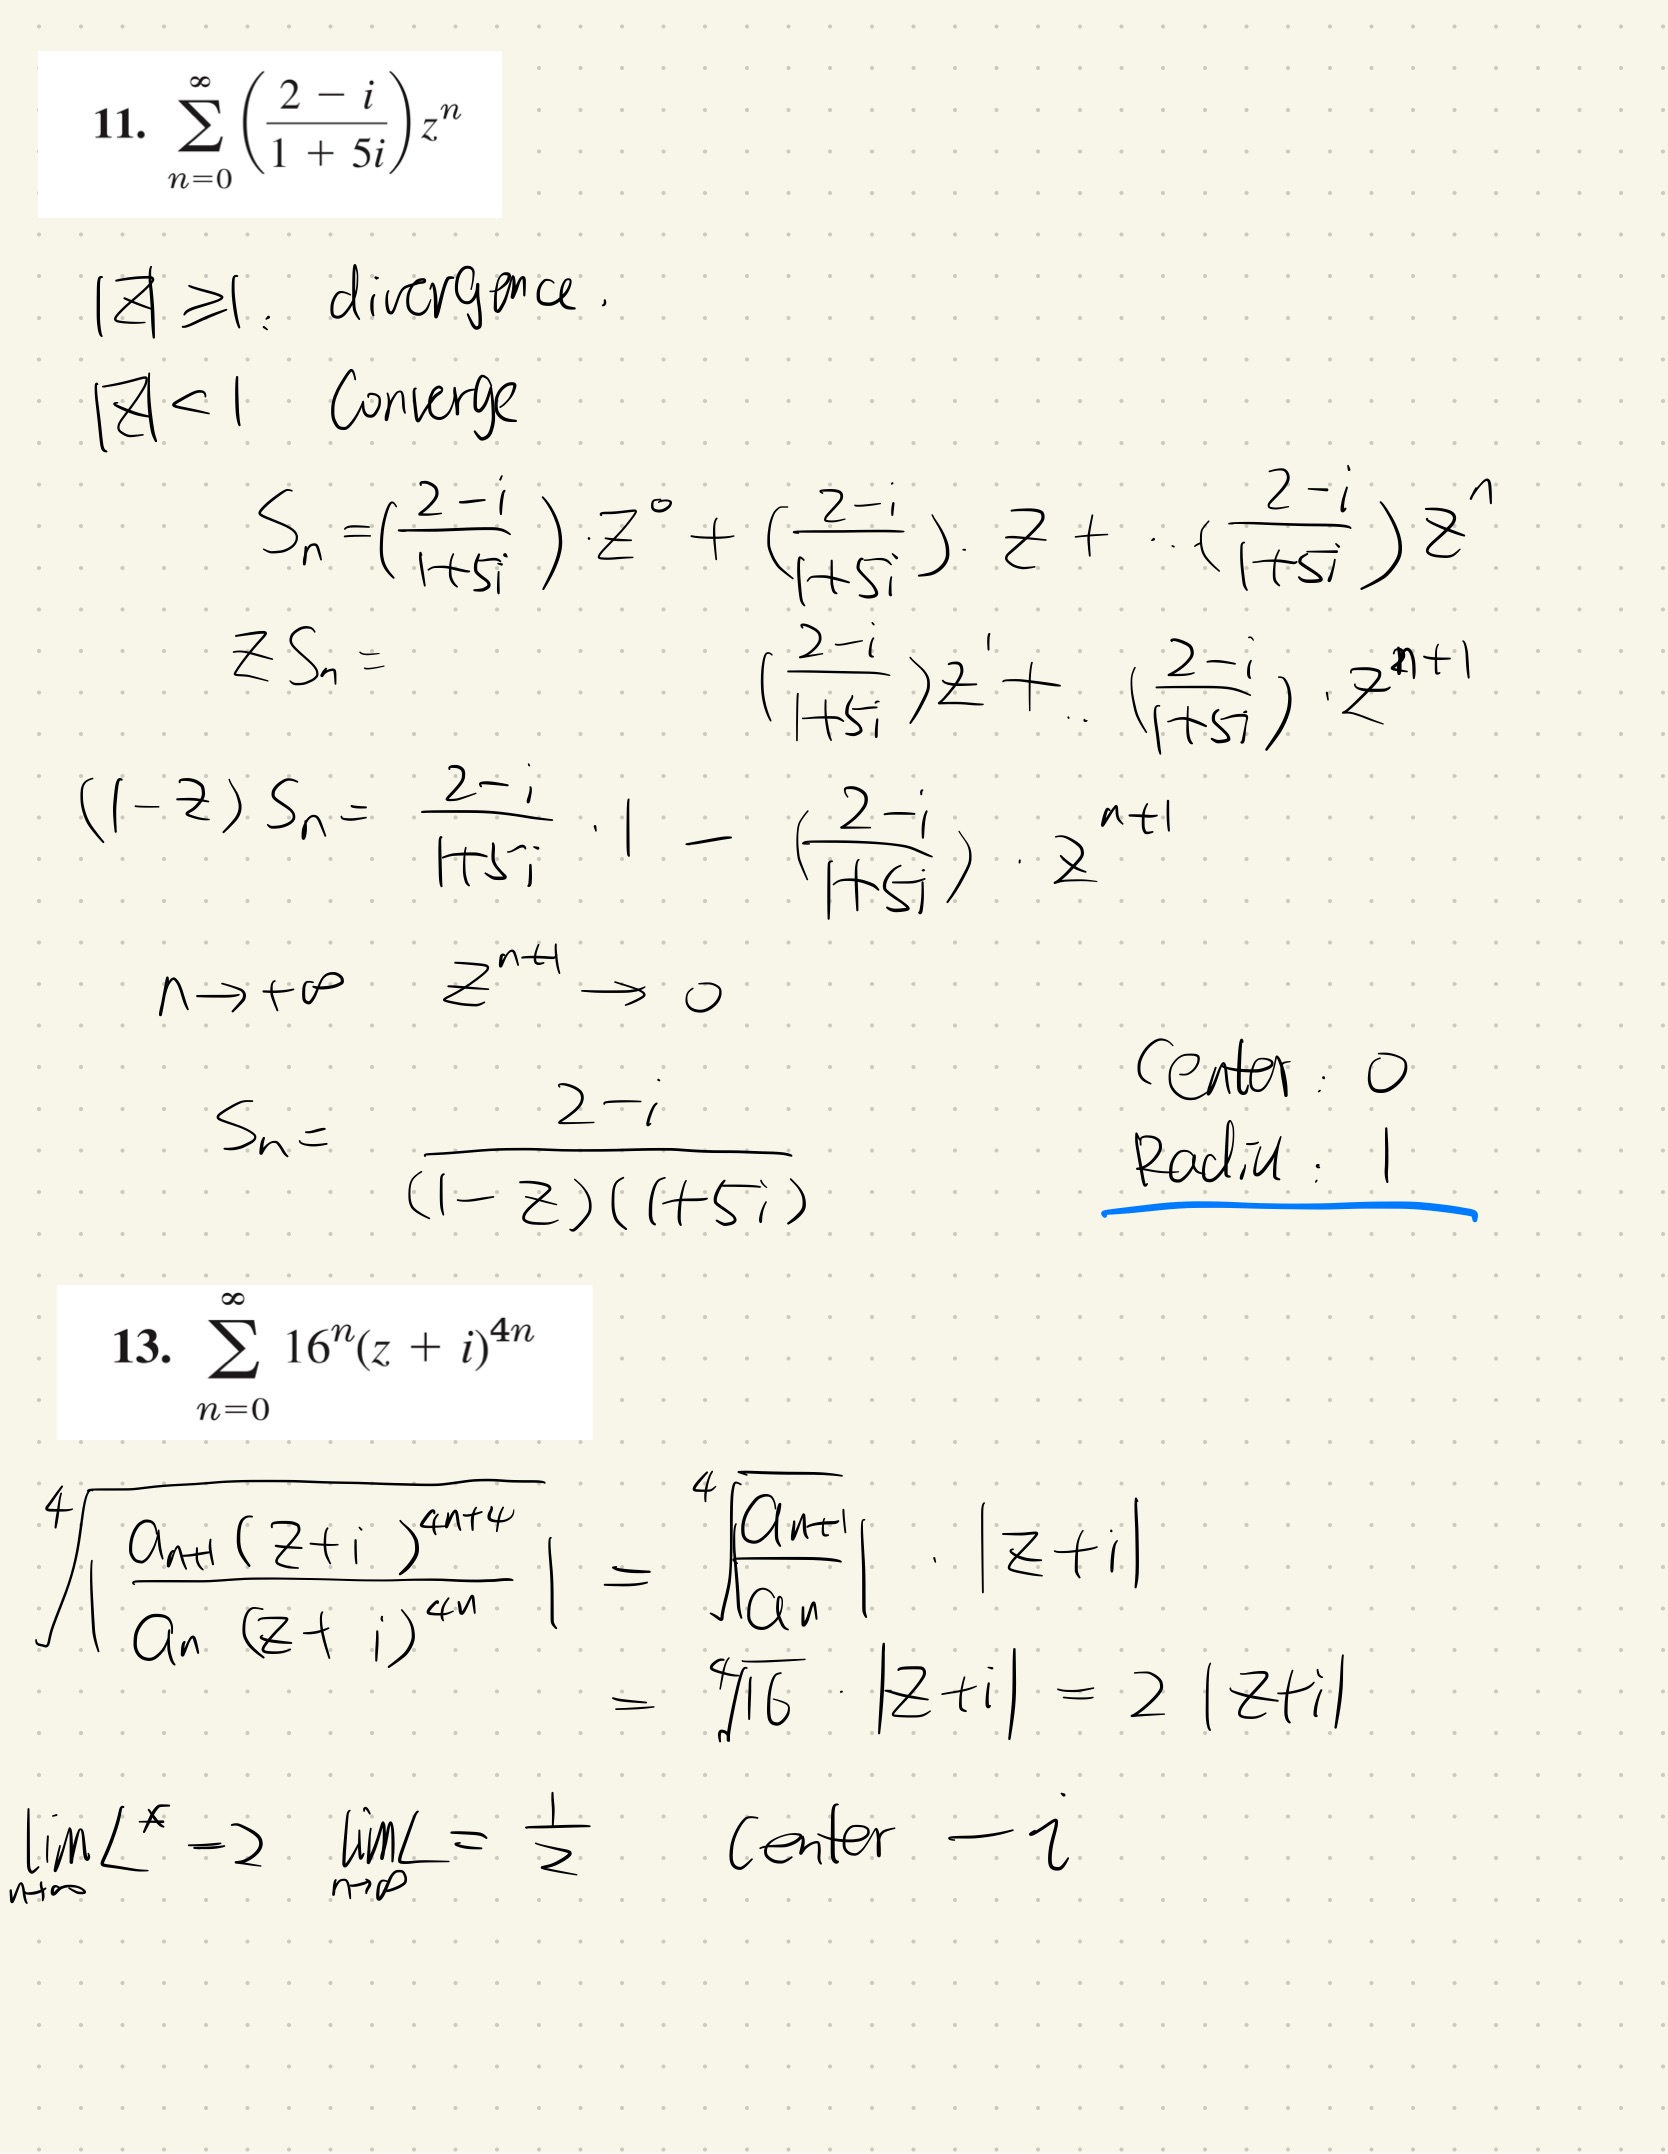 11. \sum_{n=0}^{∞} ( \frac{2 − i}{1 + 5i} ) z^n
|z| ≥ 1 : divergence.
|z| < 1 Converge
S_n = ( \frac{2-i}{1+5i} ) · z^0 + ( \frac{2-i}{1+5i} ) · z + ··· ( \frac{2-i}{1+5i} ) z^n
z S_n = ( \frac{2-i}{1+5i} ) z^1 + ·· ( \frac{2-i}{1+5i} ) · z^{n+1}
(1-z) S_n = \frac{2-i}{1+5i} · 1 − ( \frac{2-i}{1+5i} ) · z^{n+1}
n → +∞ z^{n+1} → 0
S_n = \frac{2-i}{(1-z)(1+5i)}
Center : 0
Radiu : 1
13. \sum_{n=0}^{∞} 16^n (z + i)^{4n}
\sqrt[4]{| \frac{a_{n+1} (z+i)^{4n+4}}{a_n (z+i)^{4n}} |} = \sqrt[4]{| \frac{a_{n+1}}{a_n} |} · |z+i|
= \sqrt[4]{16} · |z+i| = 2 |z+i|
\lim_{n→∞} L^* = 2 \lim_{n→∞} L = \frac{1}{2} Center − i